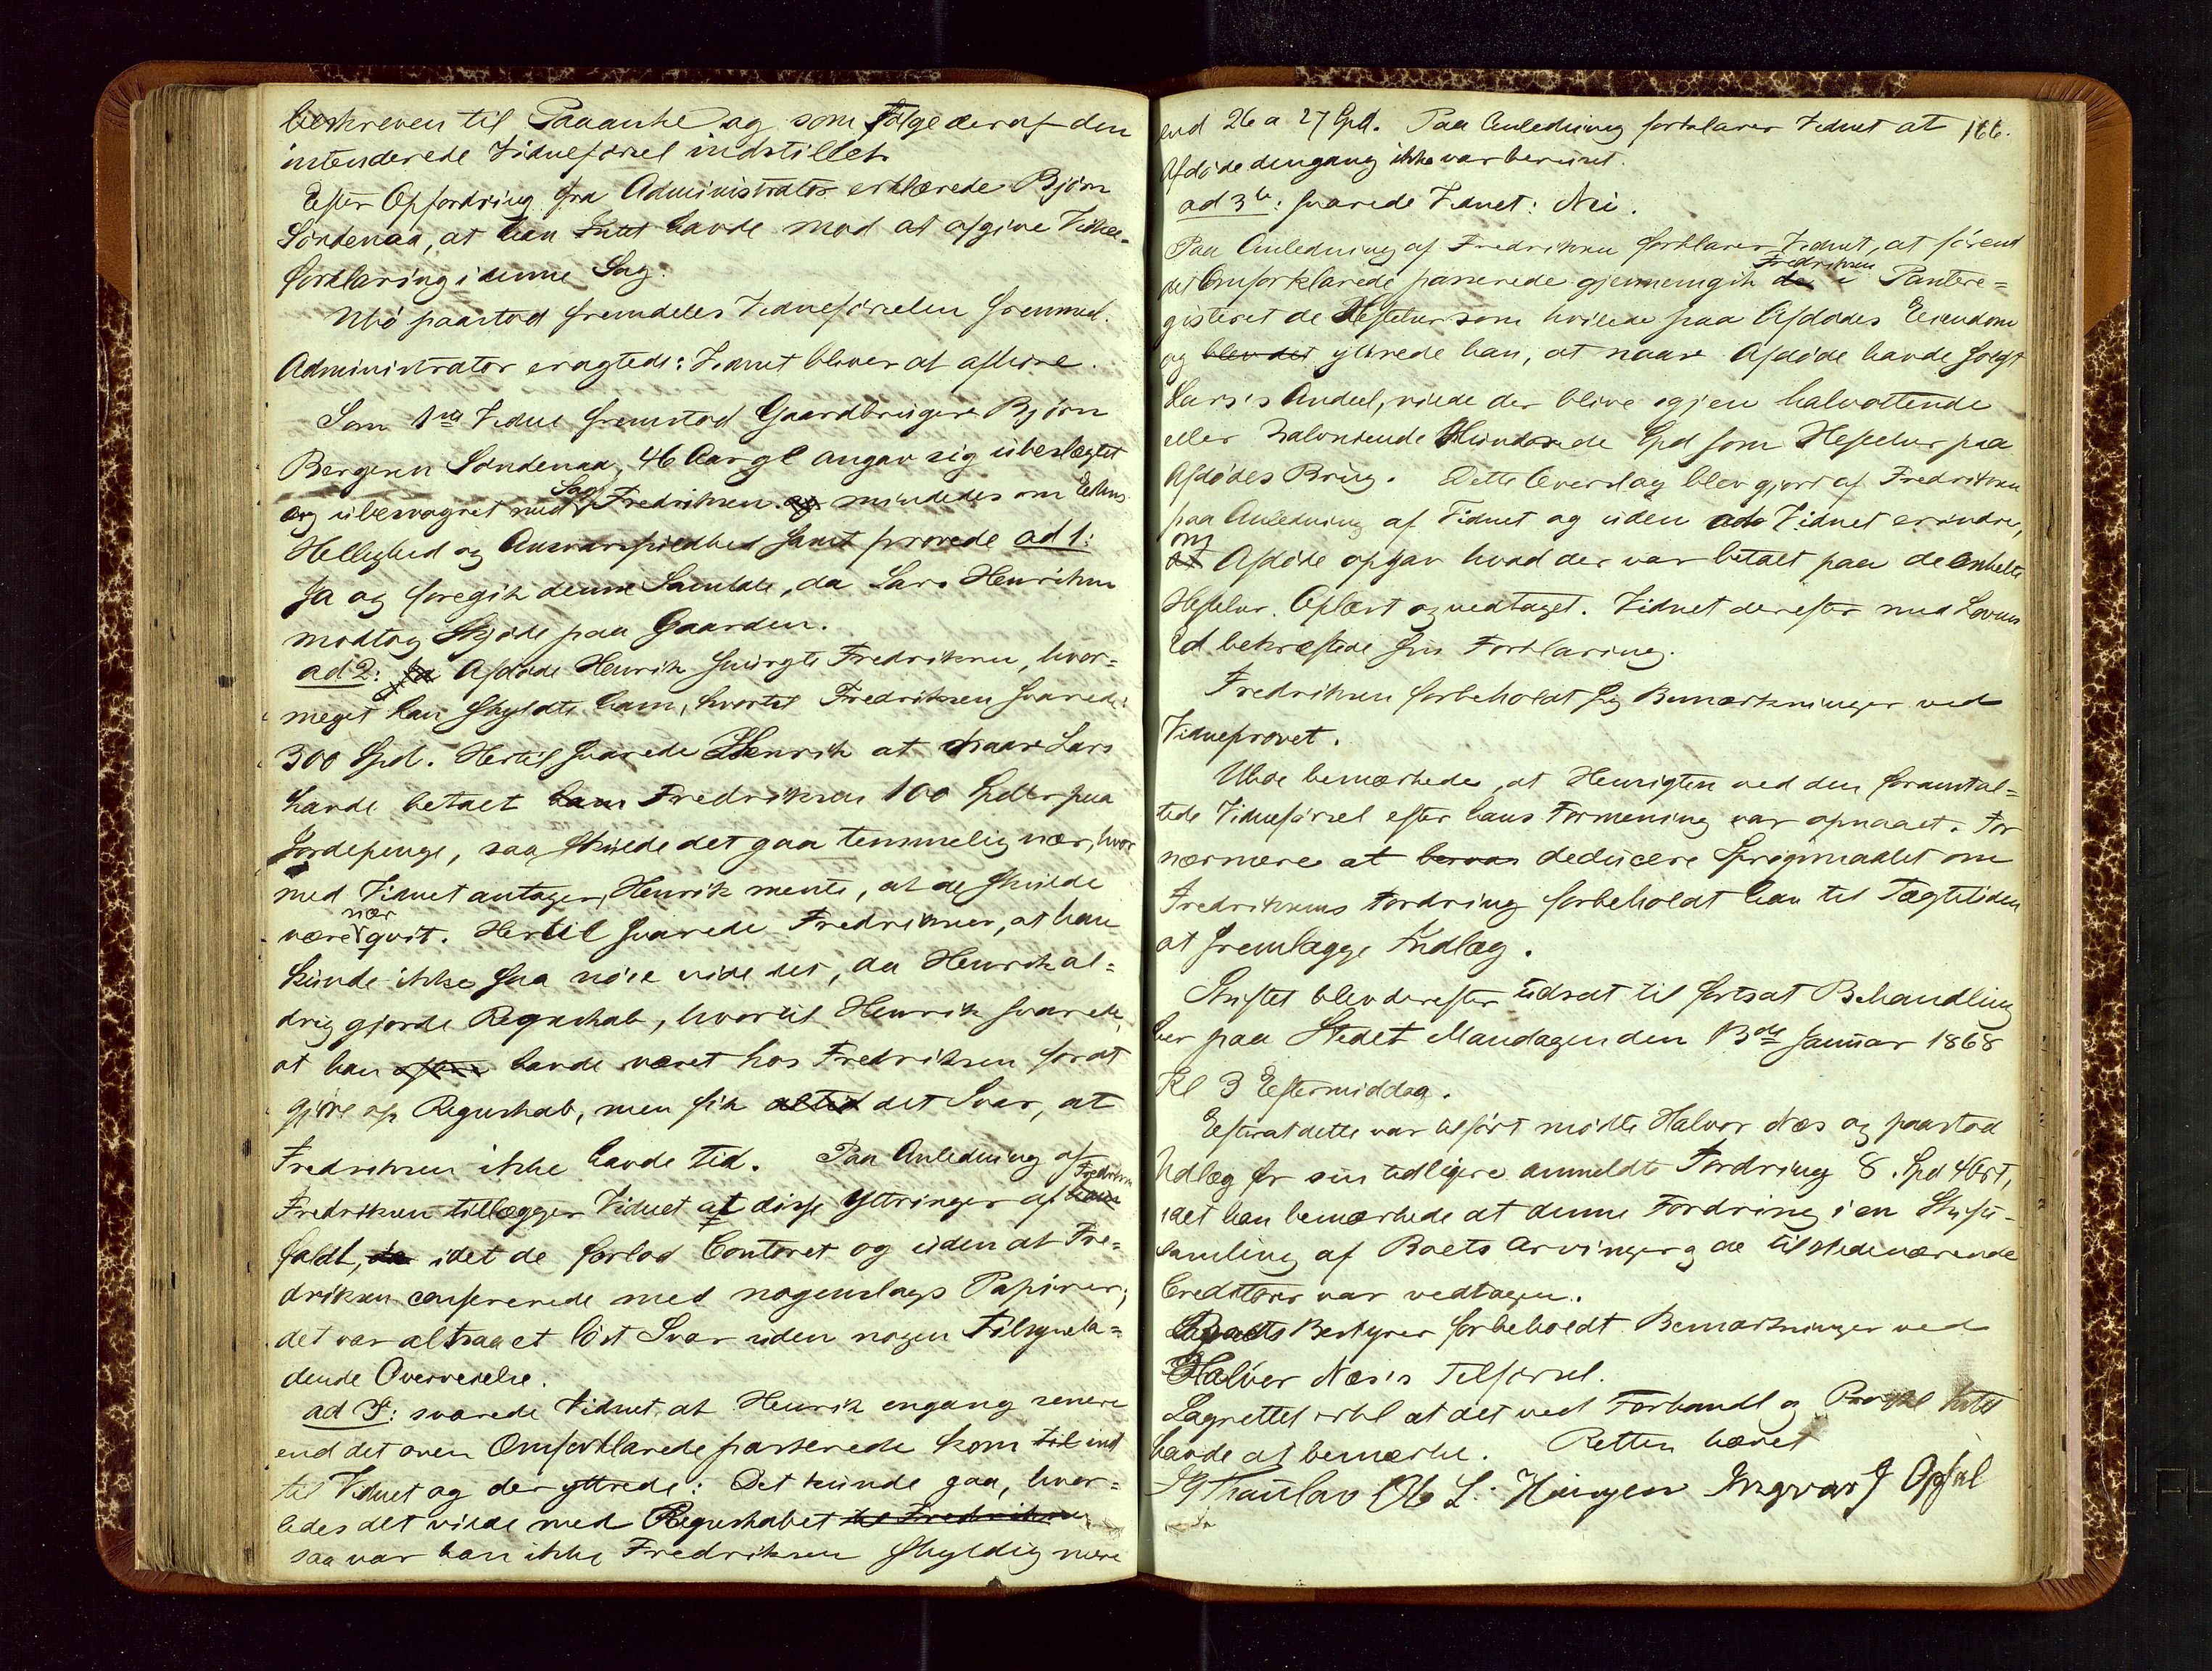 beskreven til Paaanke og som Følge deraf den
intenderede Vidneførsel indstillet.
Efter Opfordring fra Administrator erklærede Bjørn
Søndenaa, at han Intet havde mod at afgive Vidne-
forklaring i denne Sag.
Ubø paastod fremdeles Vidneførselen fremmed.
Administrator eragtede: Vidnet bliver at afhøre.
Som 1ste Vidne fremstod Gaardbruger Bjørn
Bergesen Søndenaa, 46 Aar gl angav sig ubeslægtet
og ubesvogret med Sagf. Fredriksen. og mindedes om Edens
Hellighed og Ansvarspligtighed samt prøvede ad 1:
Ja og foregik denne Samtale, da Lars Henriksen
modtog Skjøde paa Gaarden.
ad 2: Ja Afdøde Henrik spurgte Fredriksen, hvor=
meget han skyldte ham, hvortil Fredriksen svarede:
300 Spd. Hertil svarede Henrik at naar Lars
havde betalt ham Fredriksen 100 Spdlr paa
Jordepenge, saa skulde det gaa temmelig nær, hvor
med Vidnet antager, Henrik mente, at de skulde
være nær qvit. Hertil svarede Fredriksen, at han
kunde ikke saa nøie vide det, da Henrik al=
drig gjorde Regnskab, hvortil Henrik svarede,
at han havde været hos Fredriksen for at
gjøre op Regnskab, men fik altid det Svar, at
Fredriksen ikke havde Tid. Paa Anledning af
Fredriksen tillægger Vidnet at disse Yttringer af ham Fredriksen
faldt, da idet de forlod Contoret og uden at Fre=
driksen confererede med nogenslags Papirer;
det var altsaa et løst Svar uden nogen Tilsynela=
dende Overveielse.
ad 3: svarede Vidnet, at Henrik engang senere
end det oven Omforklarede passerede kom til ind
til Vidnet og der yttrede: Det kunde gaa, hvor=
ledes det vilde med Regnskabet til Fredriksen
saa var han ikke Fredriksen skyldig mere
end 26 a 27 Spd. Paa Anledning forklarer Vidnet at 166.
Afdøde dengang ikke var beruset.
ad 3 b: svarede Vidnet: Nei.
Paa Anledning af Fredriksen forklarer Vidnet, at førend
det Omforklarede passerede gjennemgik de Fredriksen i Pantere=
gisteret de Heftelser som hvilede paa Afdødes Eiendom
og blev det yttrede han, at naar Afdøde havde solgt
Lars's Andeel, vilde der blive igjen halvottende
eller halvniende Hundrede Spd som Heftelser paa
Afdødes Brug. Dette Overslag blev gjort af Fredriksen
paa Anledning af Vidnet og uden at Vidnet erindrer,
at om Afdøde opgav hvad der var betalt paa de enkelte
Heftelser. Oplæst og vedtaget. Vidnet derefter med Lovens
Ed bekræftede sin Forklaring.
Fredriksen forbeholdt sig Bemærkninger ved
Vidneprovet.
Uboe bemærkede, at Hensigten ved den foranstal=
tede Vidneførsel efter hans Formening var opnaaet. For
nærmere at deducere Spørgsmaalet om
Fredriksens Fordring forbeholdt han til Tægtetiden
at fremlægge Indlæg.
Skiftet blev derefter udsat til fortsat Behandling
her paa Stedet Mandagen den 13de Januar 1868
Kl 3 Eftermiddag.
Efterat dette var tilført mødte Halvor Næs og paastod
Udlæg for sin tidligere anmeldte Fordring 8. Spd 4 Ort,
idet han bemærkede at denne Fordring i en Skifte-
samling af Boets Arvinger og de tilstedeværende
Creditorer var vedtagen.
Boets Bestyrer forbeholdt Bemærkninger ved
Halvor Næs's Tilførsel.
Lagrettet erkl at det ved Forhandl og Protokol Intet
havde at bemærke. Retten hævet
Ole L. Haugen Ingvar J Opsal